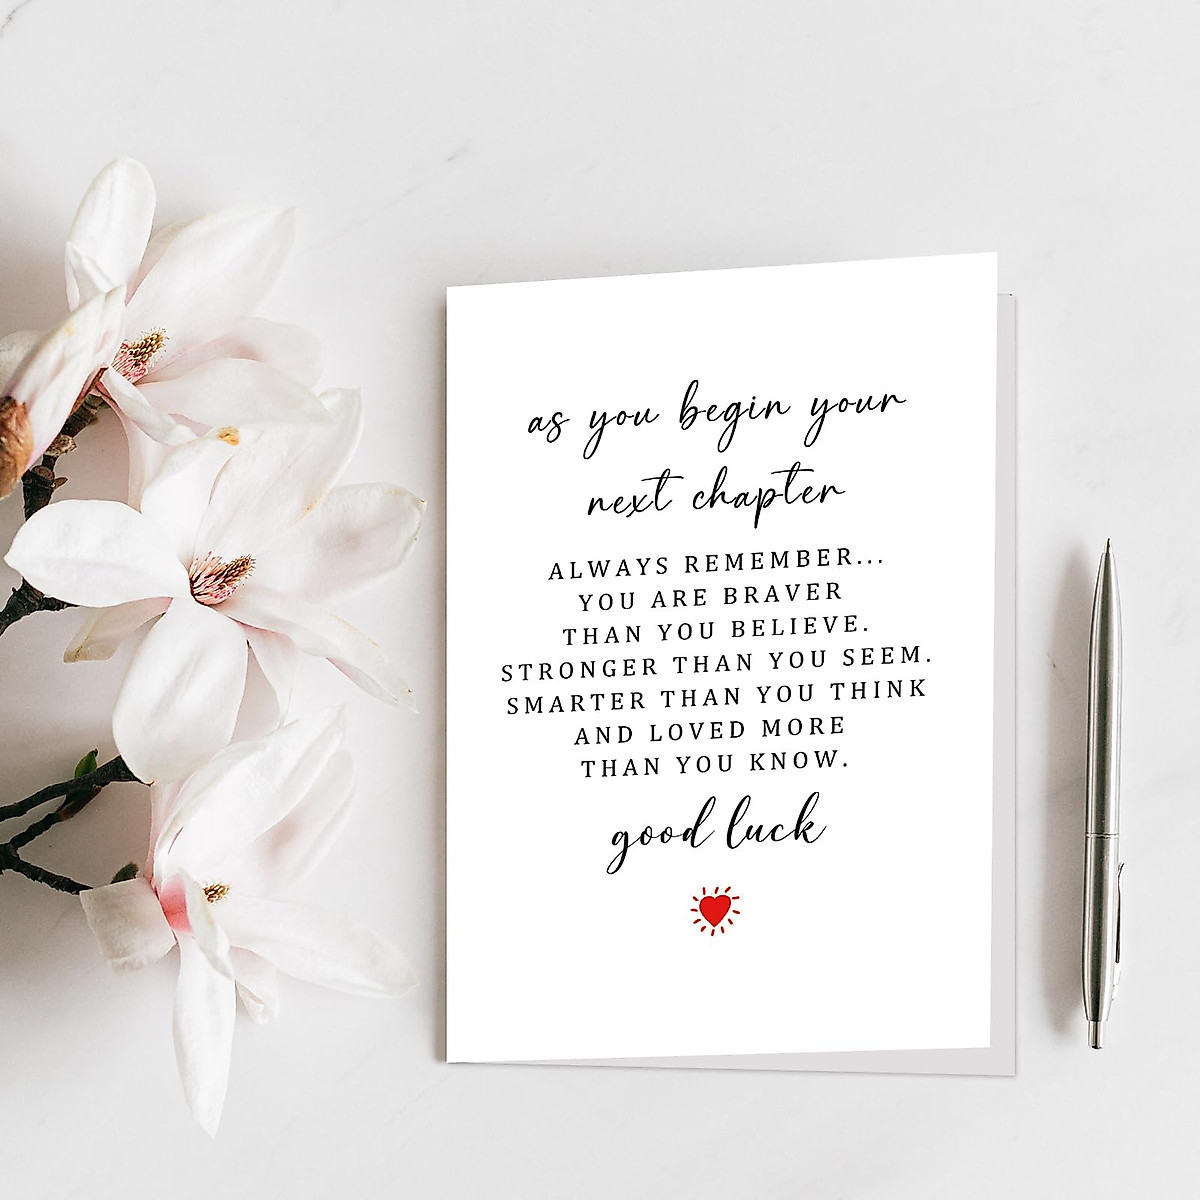 as you begin your
next chapter
ALWAYS REMEMBER...
YOU ARE BRAVER
THAN YOU BELIEVE.
STRONGER THAN YOU SEEM.
SMARTER THAN YOU THINK
AND LOVED MORE
THAN YOU KNOW.
good luck